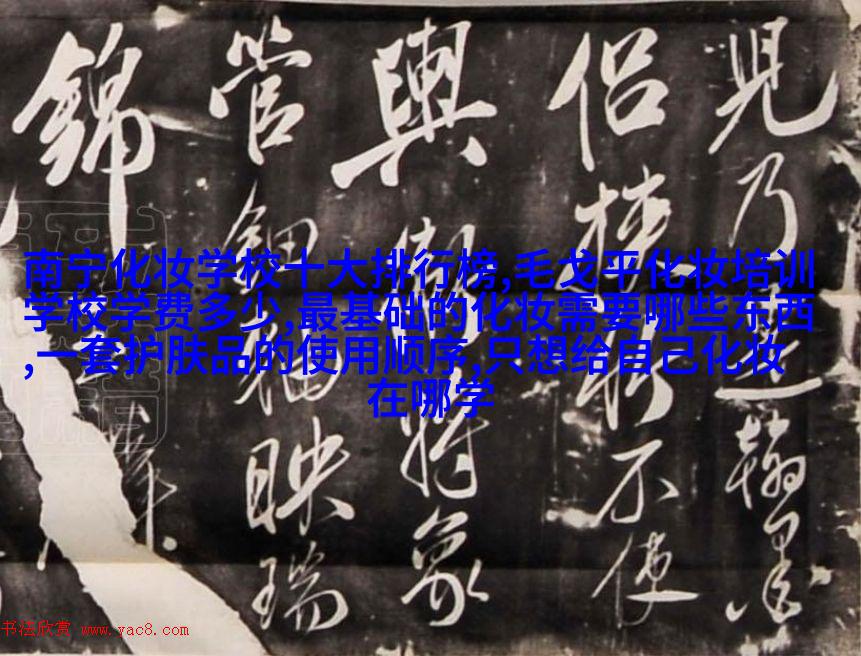 南宁化妆学校十大排行榜,毛戈平化妆培训
学校学费多少,最基础的化妆需要哪些东西
,一套护肤品的使用顺序,只想给自己化妆
在哪学
見乃翰墨
侶不使
輿將象
管鈿映瑞
錦
书法欣赏 www.yac8.com